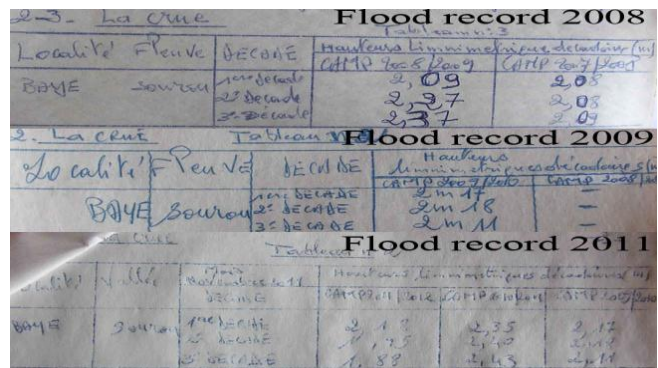 2-3. La crue Flood record 2008
Tableau n: 3
Localité Fleuve DECADE Hauteurs limnimetriques decadaires (m)
CAMP 2008/2009 CAMP 2007/2008
BAYE Sourou 1ere decade 2,09 2,08
2e Decade 2,27 2,08
3e Decade 2,37 2,09
2. La crue Tableau Flood record 2009
Localité Fleuve DECADE Hauteurs
limnimetriques decadaires (m
CAMP 2009/2010 CAMP 2008/
BAYE Sourou 1ere DECADE 2m 17 —
2e DECADE 2m 18 —
3e DECADE 2m 11 —
La crue Flood record 2011
Tableau n
Localité Vallée Mois Hauteurs limnimetriques decadaires (m)
Novembre 2011
DECADE CAMP 2011/2012 CAMP 2010/2011 CAMP 2009/2010
BAYE Sourou 1ere DECADE 2,35 2,17
DECADE 2,40
3e DECADE 1,88 2,43 2,11